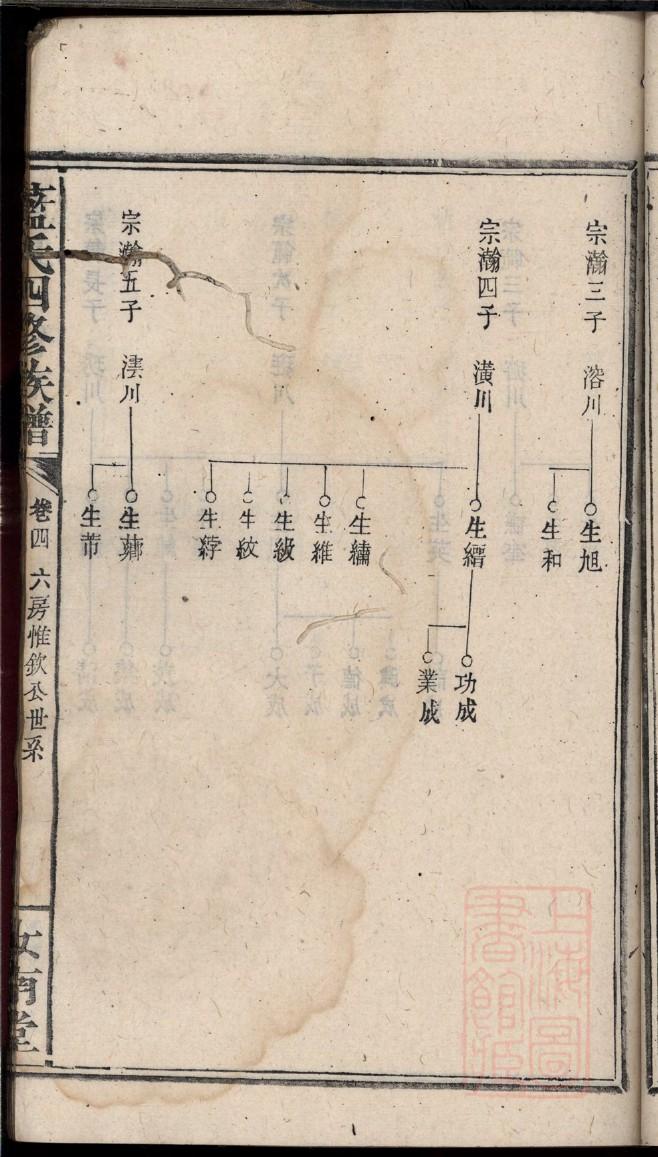 宗瀚三子 溶川
生旭
生和
宗瀚四子 潢川
生縉
功成
業成
生繡
生維
生級
生紋
生綍
宗瀚五子 澐川
生芾
藍氏四修族譜
卷四 六房惟欽公世系
汝南堂
上海圖書館藏